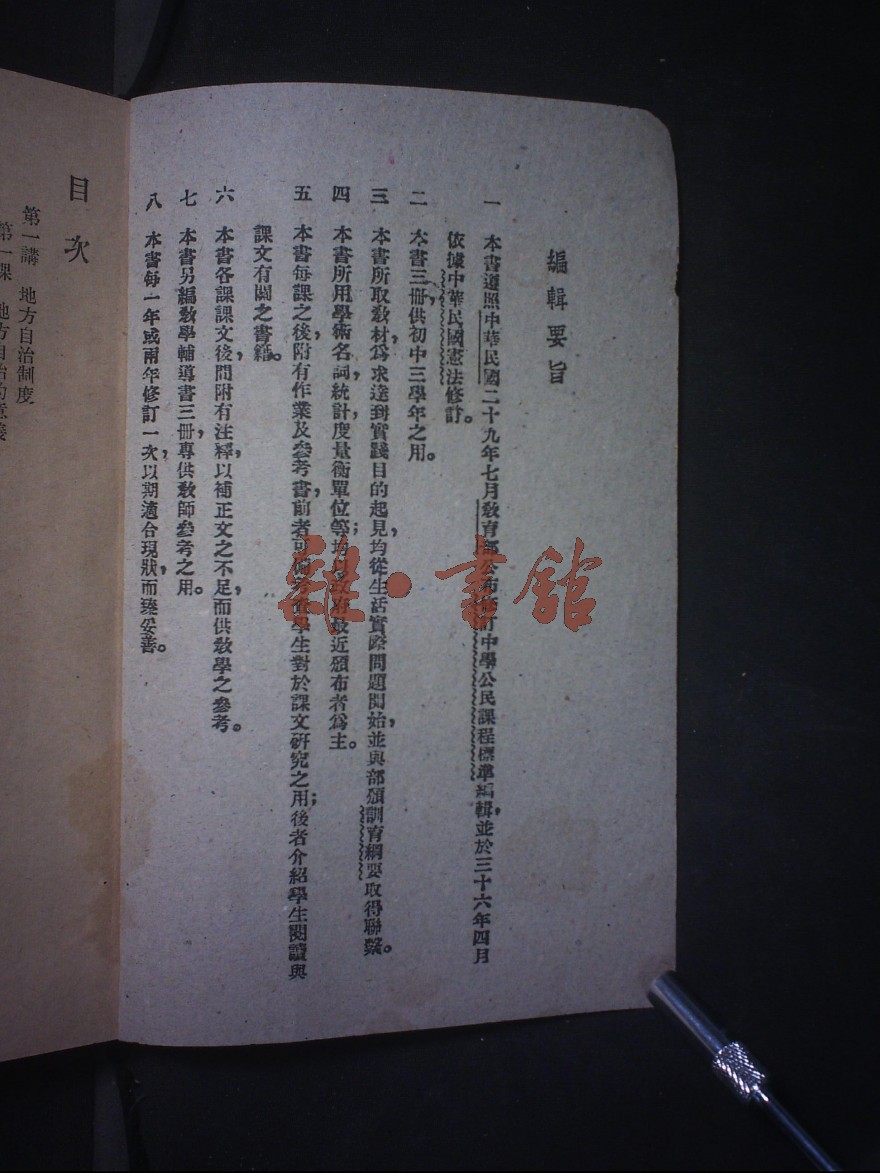 編輯要旨
一 本書遵照中華民國二十九年七月教育部公布修訂中學公民課程標準編輯，並於三十六年四月
依據中華民國憲法修訂。
二 本書三冊，供初中三學年之用。
三 本書所取教材，爲求達到實踐目的起見，均從生活實際問題開始，並與部頒訓育綱要取得聯繫。
四 本書所用學術名詞，統計，度量衡單位等；均以政府最近頒布者爲主。
五 本書每課之後，附有作業及參考書，前者可備考查學生對於課文研究之用；後者介紹學生閱讀與
課文有關之書籍。
六 本書各課課文後，間附有注釋，以補正文之不足，而供教學之參考。
七 本書另編教學輔導書三冊，專供教師參考之用。
八 本書每一年或兩年修訂一次，以期適合現狀，而臻妥善。
目次
第一講 地方自治制度
第一課 地方自治的意義
雜·書館